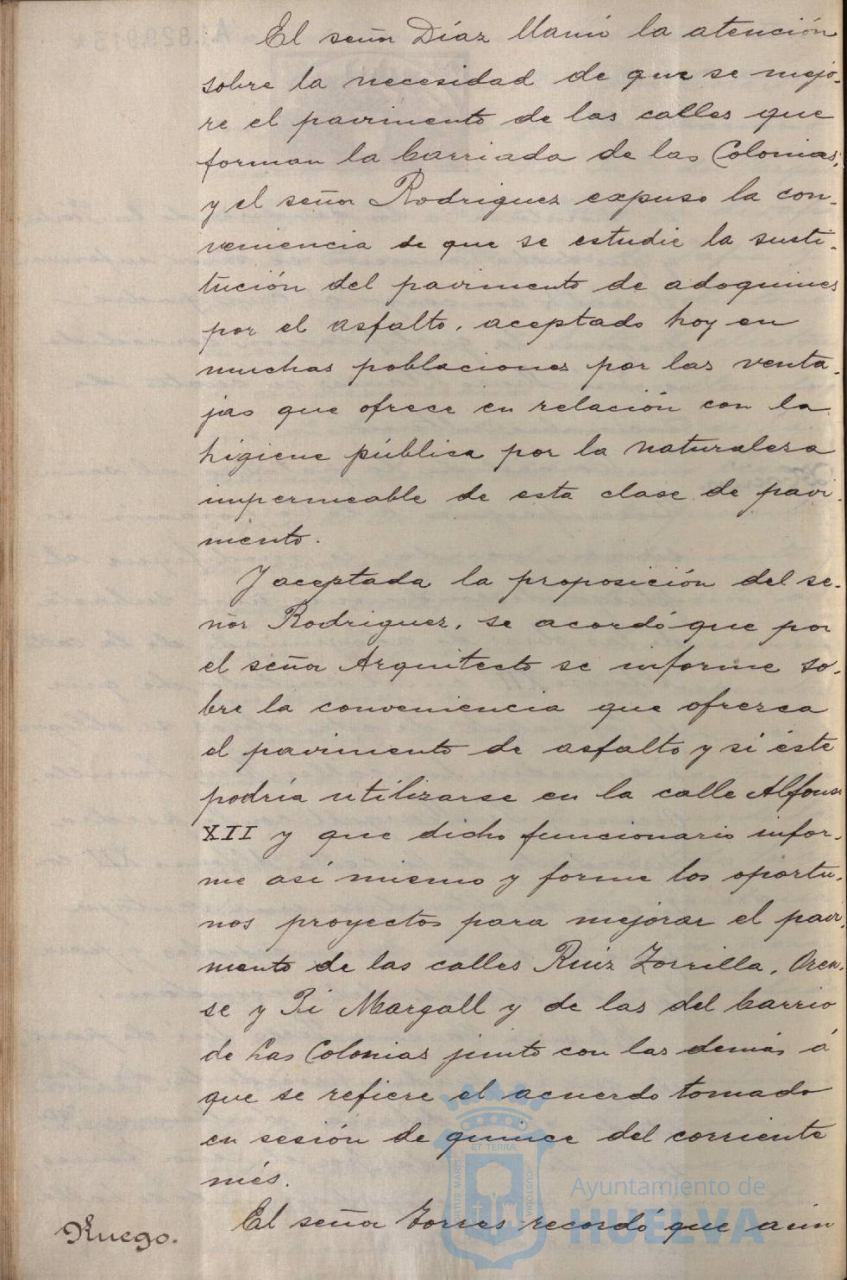 El señor Díaz llamó la atención
sobre la necesidad de que se mejo-
re el pavimento de las calles que
forman la barriada de las Colonias,
y el señor Rodriguez expuso la con-
veniencia de que se estudie la susti-
tución del pavimento de adoquines
por el asfalto, aceptado hoy en
muchas poblaciones por las venta-
jas que ofrece en relación con la
higiene pública por la naturaleza
impermeable de esta clase de pavi-
mento.
Y aceptada la proposición del se-
ñor Rodriguez, se acordó que por
el señor Arquitecto se informe so-
bre la conveniencia que ofrezca
el pavimento de asfalto y si éste
podría utilizarse en la calle Alfonso
XII y que dicho funcionario infor-
me así mismo y forme los oportu-
nos proyectos para mejorar el pavi-
mento de las calles Ruiz Zorrilla, Oren-
se y Pi Margall y de las del barrio
de Las Colonias junto con las demás á
que se refiere el acuerdo tomado
en sesión de quince del corriente
més.
Ruego. El señor Torres recordó que aún
Ayuntamiento de
HUELVA